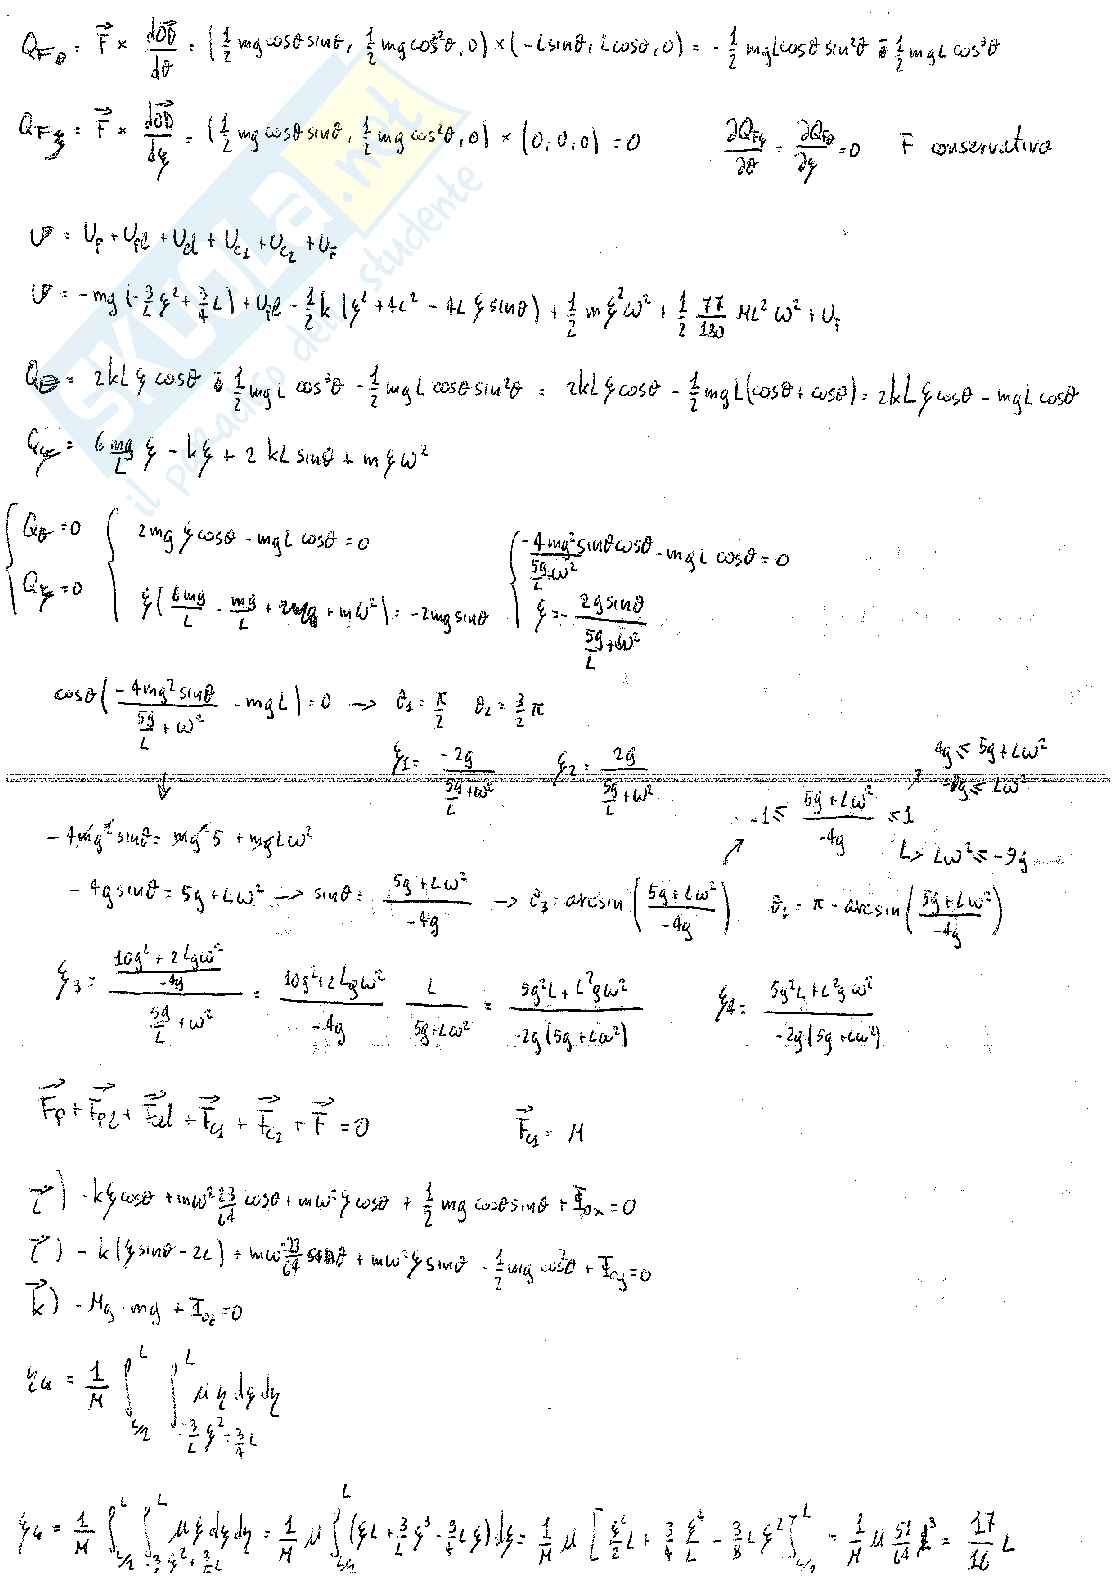 Q_{Fθ} = F⃗ × dOD⃗/dθ = (1/2 mg cosθ sinθ, 1/2 mg cos²θ, 0) × (-L sinθ, L cosθ, 0) = -1/2 mgL cosθ sin²θ 1/2 mgL cos³θ
Q_{Fξ} = F⃗ × dOD⃗/dξ = (1/2 mg cosθ sinθ, 1/2 mg cos²θ, 0) × (0, 0, 0) = 0 ∂Q_{Fξ}/∂θ = ∂Q_{Fθ}/∂ξ = 0 F conservativa
U = U_P + U_{Pl} + U_{el} + U_{c1} + U_{c2} + U_F
U = -mg (-3/L ξ² + 3/4 L) + U_{Pl} - 1/2 k (ξ² + 4L² - 4Lξ sinθ) + 1/2 m ξ² ω² + 1/2 77/180 ML² ω² + U_F
Q_θ = 2kLξ cosθ 1/2 mgL cos³θ - 1/2 mgL cosθ sin²θ = 2kLξ cosθ - 1/2 mgL (cosθ + cosθ) = 2kLξ cosθ - mgL cosθ
Q_ξ = 6 mg/L ξ - kξ + 2kL sinθ + mξω²
{ Q_θ = 0 { 2mgξ cosθ - mgL cosθ = 0 { -4mg² sinθ cosθ / (5g/L + ω²) - mgL cosθ = 0
Q_ξ = 0 ξ (6mg/L - mg/L + mω²) = -2mg sinθ ξ = - 2g sinθ / (5g/L + ω²)
cosθ (-4mg² sinθ / (5g/L + ω²) - mgL) = 0 → θ₁ = π/2 θ₂ = 3/2 π
ξ₁ = -2g / (5g/L + ω²) ξ₂ = 2g / (5g/L + ω²) 4g ≤ 5g + Lω²
-9g ≤ Lω²
-4mg² sinθ = mg² 5 + mgLω² -1 ≤ (5g + Lω²)/-4g ≤ 1
↳ Lω² ≤ -9g
-4g sinθ = 5g + Lω² → sinθ = (5g + Lω²)/-4g → θ₃ = arcsin ((5g + Lω²)/-4g) = π - arcsin ((5g + Lω²)/-4g)
ξ₃ = ((10g² + 2Lgω²)/-4g) / (5g/L + ω²) = (10g² + 2Lgω²)/-4g L/(5g + Lω²) = (5g²L + L²gω²) / (-2g (5g + Lω²)) ξ₄ = (5g²L + L²gω²) / (-2g (5g + Lω²))
F⃗_P + F⃗_{Pl} + F⃗_{el} + F⃗_{c1} + F⃗_{c2} + F⃗ = 0 F⃗_{c1} = M
i⃗) -kξ cosθ + mω² 23/64 cosθ + mω²ξ cosθ + 1/2 mg cosθ sinθ + Φ_{Ox} = 0
-k (ξ sinθ - 2L) + mω² 23/64 sinθ + mω²ξ sinθ - 1/2 mg cos²θ + Φ_{Oy} = 0
k⃗) -Mg - mg + Φ_{Oz} = 0
η_G = 1/M ∫_{L/2}^{L} ∫_{-3/L ξ² + 3/4 L}^{L} μη dξ dη
ξ_G = 1/M ∫_{L/2}^{L} ∫_{-3/L ξ² + 3/4 L}^{L} μξ dξ dη = 1/M μ ∫_{L/2}^{L} (ξL + 3/L ξ³ - 3/4 Lξ) dξ = 1/M μ [ξ²/2 L + 3/4 ξ⁴/L - 3/8 Lξ²]_{L/2}^{L} = 1/M μ 51/64 L³ = 17/16 L